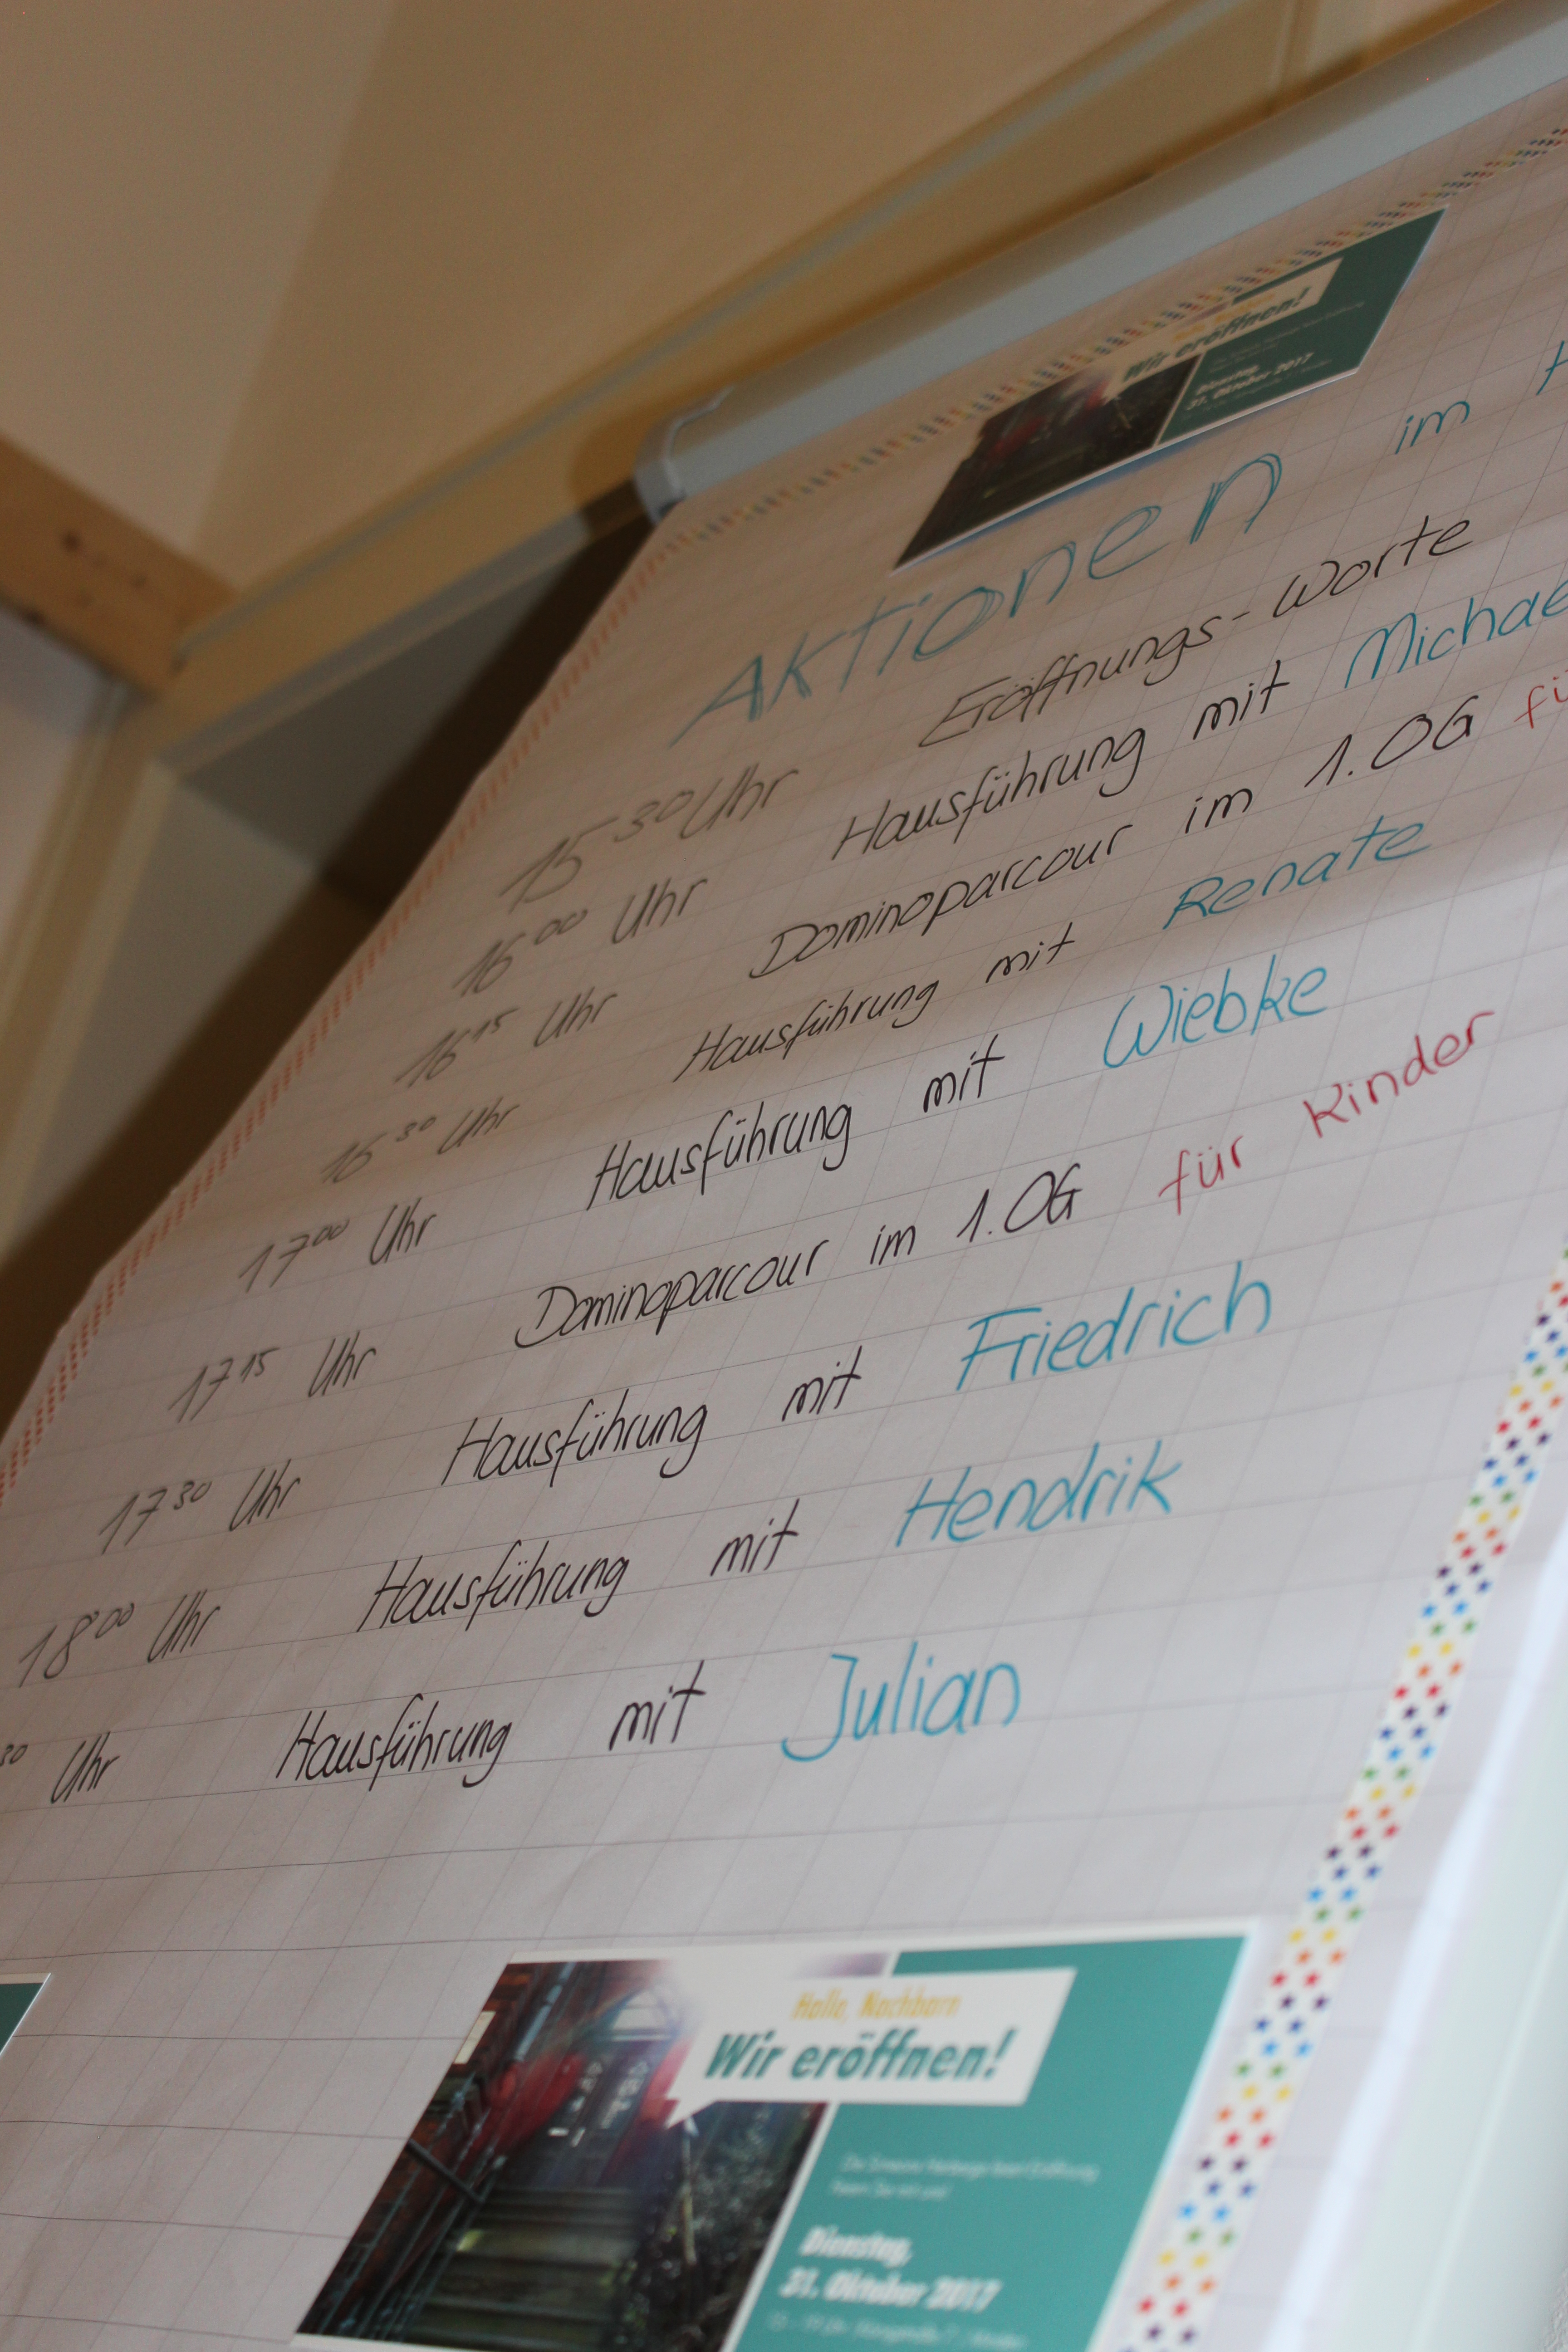 Wir eröffnen!
Dienstag,
31. Oktober 2017
Aktionen im
15 30 Uhr Eröffnungs-Worte
16 00 Uhr Hausführung mit Michae
16 15 Uhr Dominoparcour im 1.OG fü
16 30 Uhr Hausführung mit Renate
17 00 Uhr Hausführung mit Wiebke
17 15 Uhr Dominoparcour im 1.OG für Kinder
17 30 Uhr Hausführung mit Friedrich
18 00 Uhr Hausführung mit Hendrik
30 Uhr Hausführung mit Julian
Hallo, Nachbarn
Wir eröffnen!
Dienstag,
31. Oktober 2017